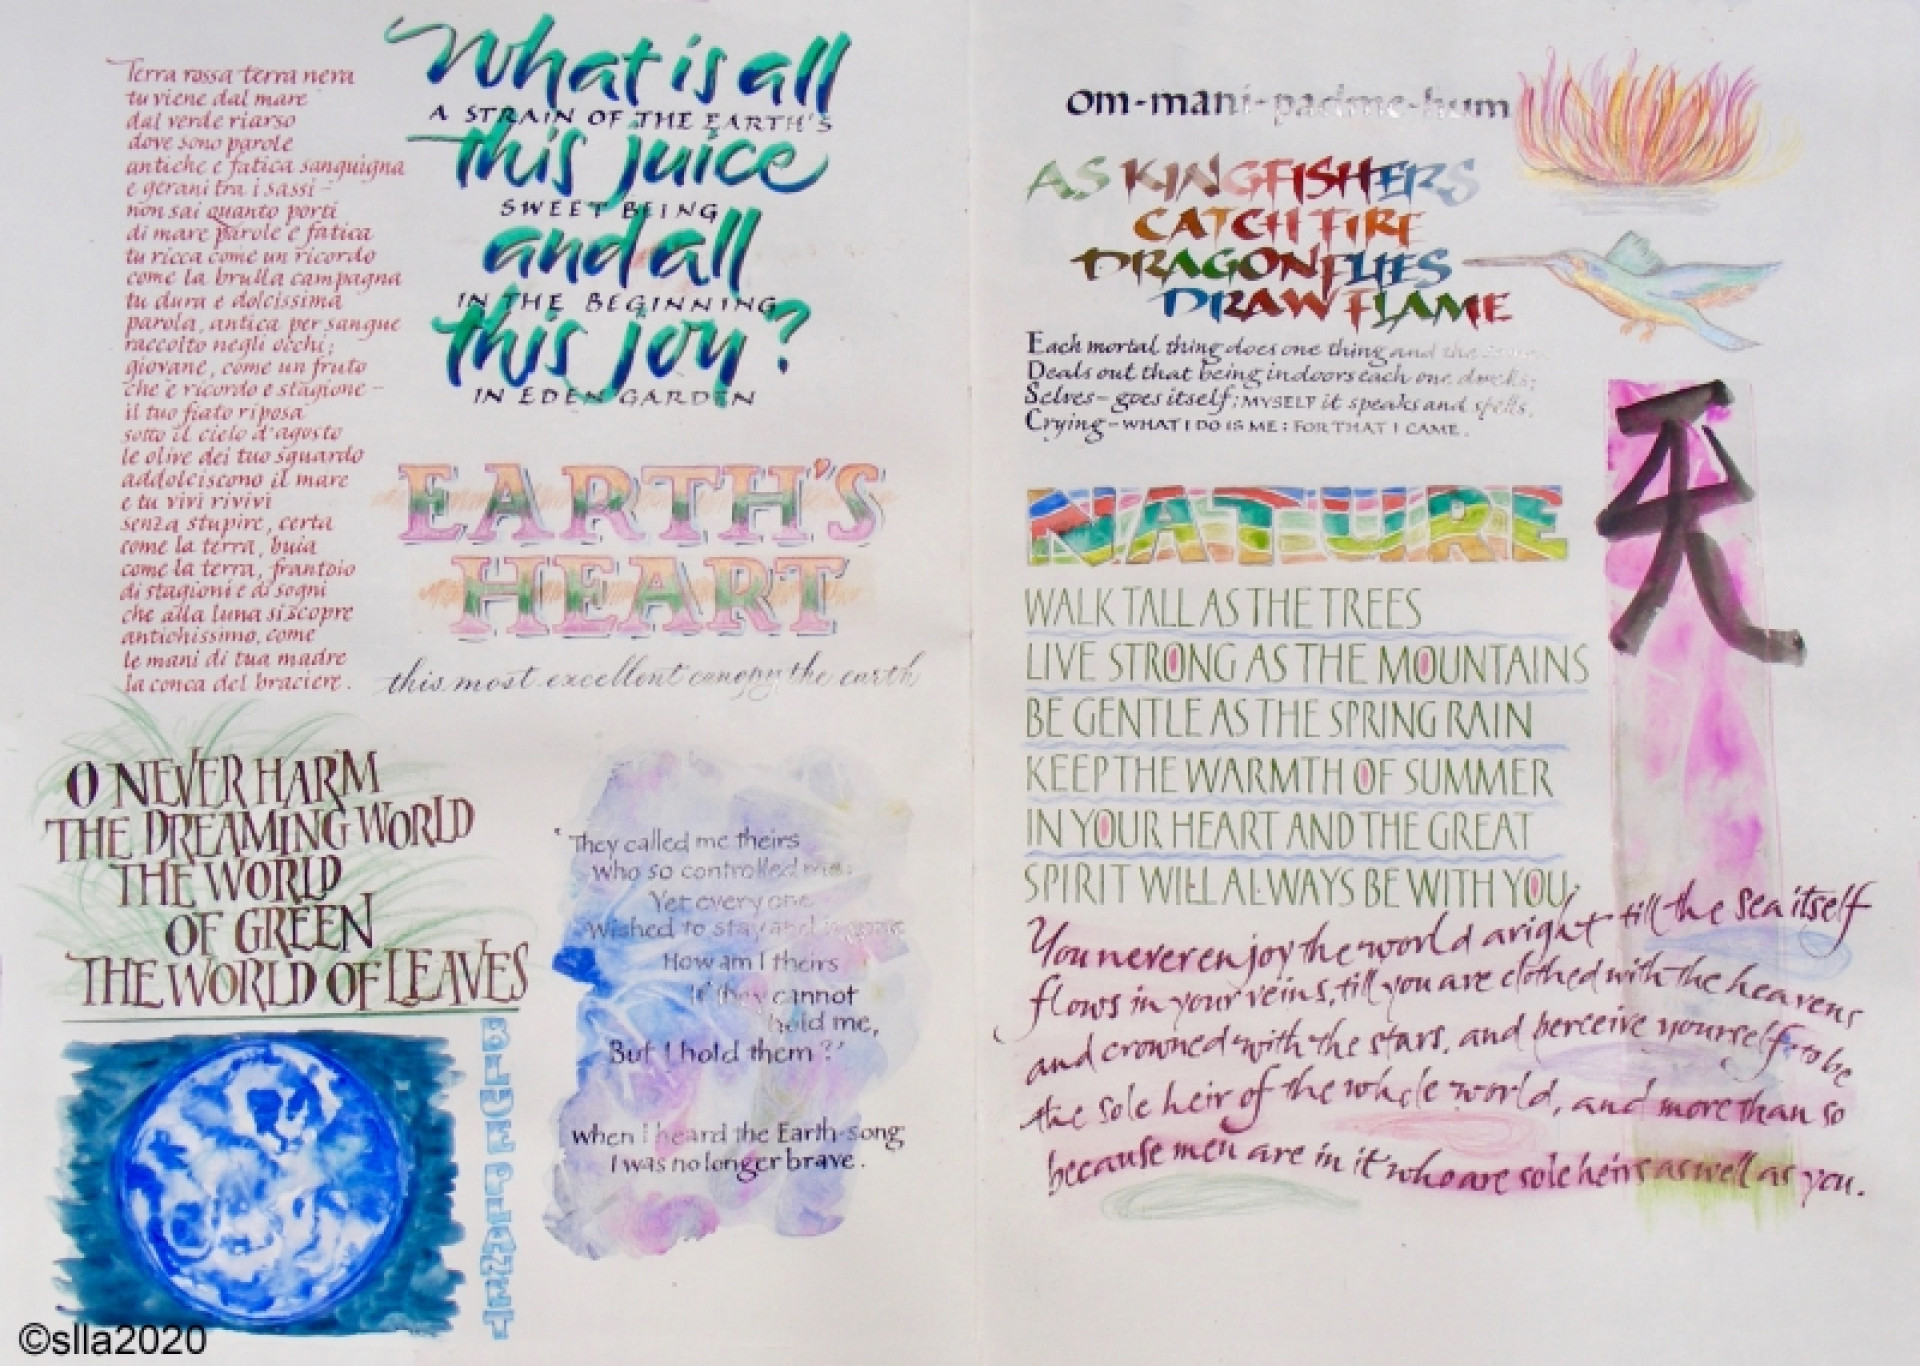 Terra rossa terra nera
tu viene dal mare
dal verde riarso
dove sono parole
antiche e fatica sanguigna
e gerani tra i sassi –
non sai quanto porti
di mare parole e fatica
tu ricca come un ricordo
come la brulla campagna
tu dura e dolcissima
parola, antica per sangue
raccolto negli occhi;
giovane, come un fruto
che è ricordo e stagione –
il tuo fiato riposa
sotto il cielo d'agosto
le olive dei tuo sguardo
addolciscono il mare
e tu vivi rivivi
senza stupire, certa
come la terra, buia
come la terra, frantoio
di stagioni e di sogni
che alla luna si scopre
antichissimo, come
le mani di tua madre
la conca del braciere.
What is all
A STRAIN OF THE EARTH'S
this juice
SWEET BEING
and all
IN THE BEGINNING
this joy?
IN EDEN GARDEN
EARTH'S
HEART
this most excellent canopy the earth
O NEVER HARM
THE DREAMING WORLD
THE WORLD
OF GREEN
THE WORLD OF LEAVES
BLUE PLANET
'They called me theirs
who so controlled me;
Yet every one
Wished to stay and is gone
How am I theirs
If they cannot
hold me,
But I hold them?'
when I heard the Earth-song
I was no longer brave.
om-mani-padme-hum
AS KINGFISHERS
CATCH FIRE
DRAGONFLIES
DRAW FLAME
Each mortal thing does one thing and the same:
Deals out that being indoors each one dwells;
Selves – goes itself; MYSELF it speaks and spells,
Crying – WHAT I DO IS ME: FOR THAT I CAME.
天
NATURE
WALK TALL AS THE TREES
LIVE STRONG AS THE MOUNTAINS
BE GENTLE AS THE SPRING RAIN
KEEP THE WARMTH OF SUMMER
IN YOUR HEART AND THE GREAT
SPIRIT WILL ALWAYS BE WITH YOU.
You never enjoy the world aright till the sea itself
flows in your veins, till you are clothed with the heavens
and crowned with the stars, and perceive yourself to be
the sole heir of the whole world, and more than so
because men are in it who are sole heirs as well as you.
©slla2020